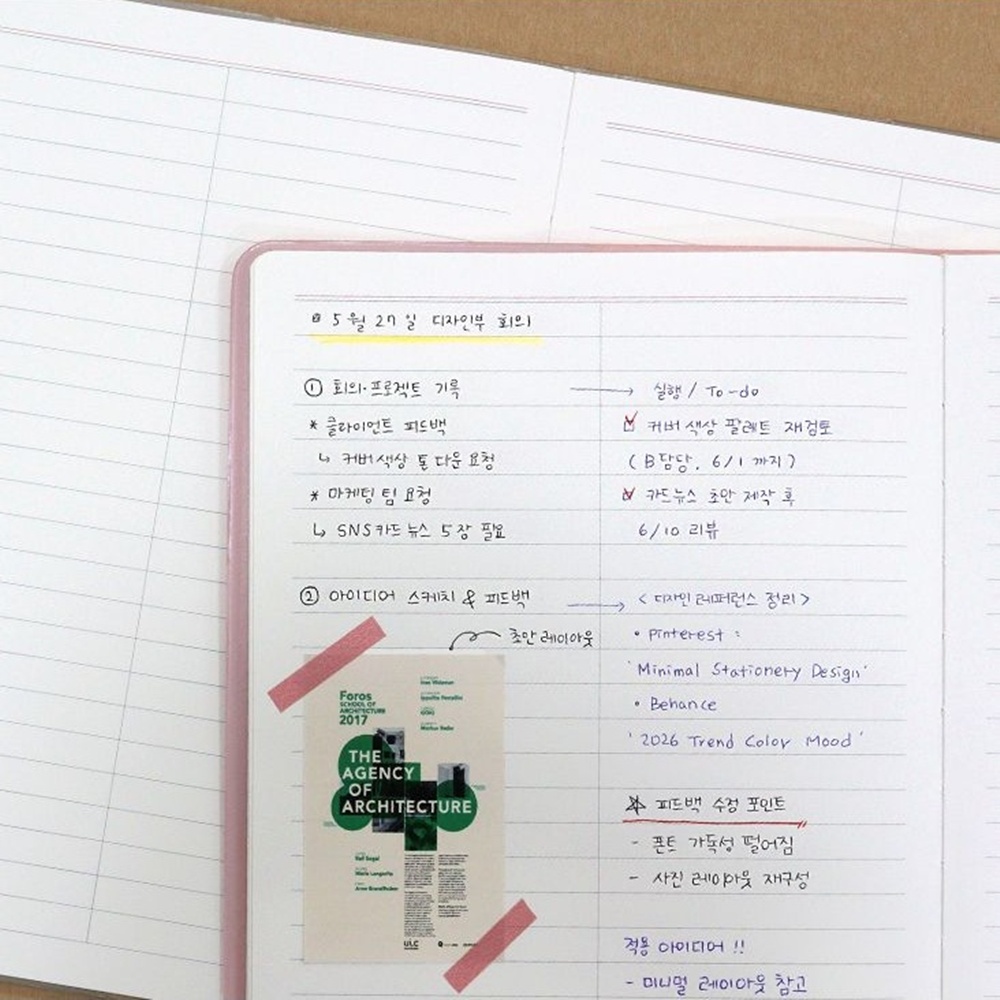 5월 27일 디자인부 회의
① 회의·프로젝트 기록 → 실행 / To-do
* 클라이언트 피드백
↳ 커버 색상 톤 다운 요청
* 마케팅 팀 요청
↳ SNS 카드 뉴스 5장 필요
☑ 커버 색상 팔레트 재검토
(B담당, 6/1 까지)
☑ 카드뉴스 초안 제작 후
6/10 리뷰
② 아이디어 스케치 & 피드백 → <디자인 레퍼런스 정리>
초안 레이아웃
Foros
SCHOOL OF
ARCHITECTURE
2017
THE
AGENCY
OF
ARCHITECTURE
ULC
• Pinterest :
'Minimal Stationery Design'
• Behance
'2026 Trend Color Mood'
피드백 수정 포인트
- 폰트 가독성 떨어짐
- 사진 레이아웃 재구성
적용 아이디어 !!
- 미니멀 레이아웃 참고